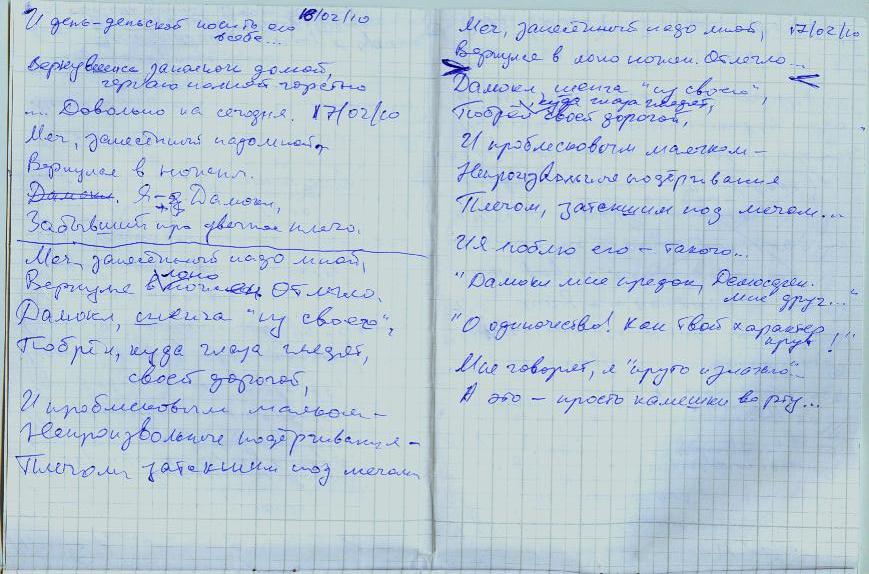 И день-деньской носить его 18/02/10
в себе...
Вернувшись запалом домой,
черпаю полной горстью
... Довольно на сегодня. 17/02/10
Меч, занесённый надо мной,
Вернулся в ножны.
Дамокл. Я - Дамокл,
Забывший про двечное плечо.
Меч, занесённый надо мной,
Вернулся в лоно ножен. Отлегло.
Дамокл, шепча "из своего",
Побрёл, куда глаза глядят,
своей дорогой,
И проблесковым маяком -
Непроизвольные подёргивания -
Плечом, затекшим под мечом
Меч, занесённый надо мной, 17/02/10
Вернулся в лоно ножен. Отлегло...
Дамокл, шепча "из своего",
куда глаза глядят,
Побрёл своей дорогой,
И проблесковым маячком -
Непроизвольные подёргивания
Плечом, затекшим под мечом...
И я люблю его - такого...
"Дамокл мне предок, Демосфен
мне друг..."
"О одиночество! Как твой характер
крут!"
Мне говорят, я "круто излагаю"...
А это - просто камешки во рту...